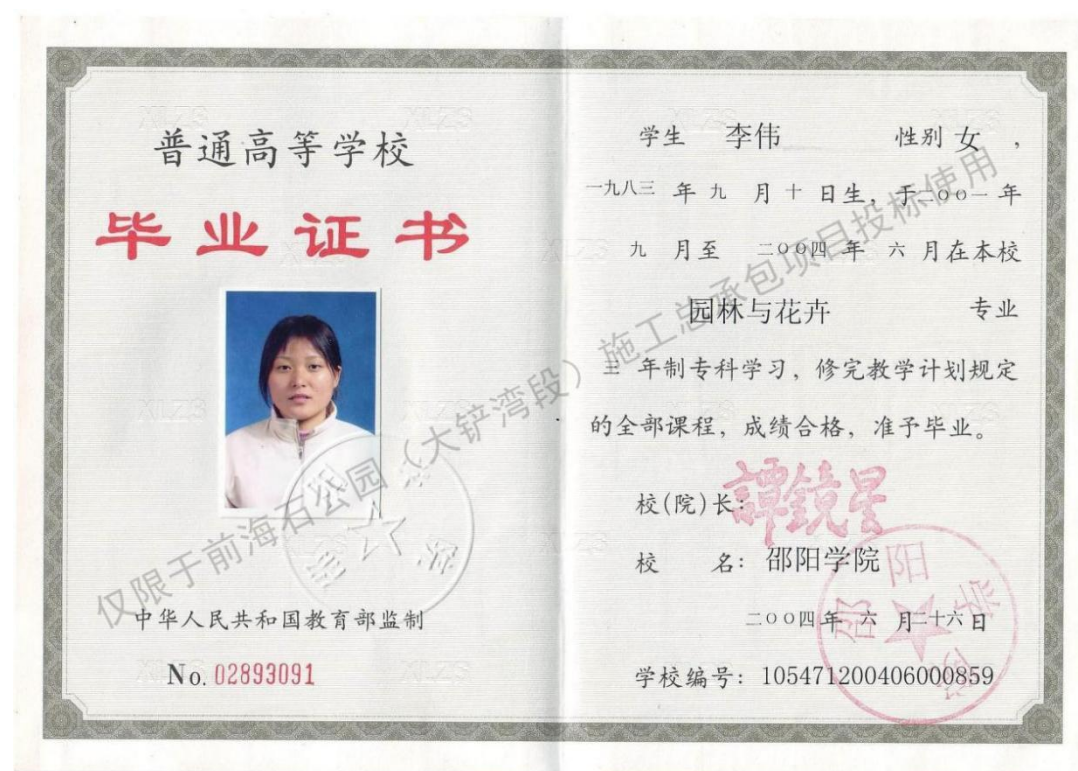 普通高等学校
毕业证书
中华人民共和国教育部监制
No. 02893091
学生 李伟 性别 女，
一九八三 年 九 月 十 日生，于二〇〇一年
九 月至 二〇〇四 年 六 月在本校
园林与花卉 专业
三 年制专科学习，修完教学计划规定
的全部课程，成绩合格，准予毕业。
校(院)长：譚鏡星
校 名：邵阳学院
二〇〇四年 六 月二十六日
学校编号：105471200406000859
邵阳学院
仅限于前海石公园（大铲湾段）施工总承包项目投标使用
XLZS